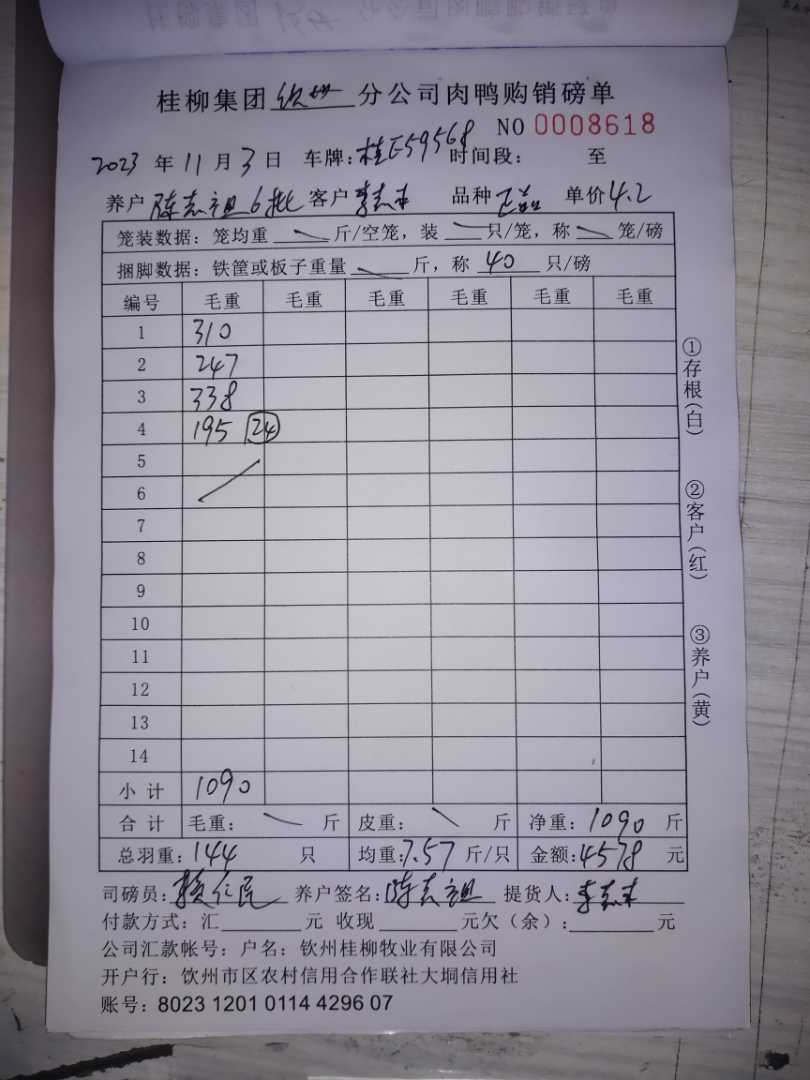 桂柳集团钦州分公司肉鸭购销磅单
NO 0008618
2023 年 11 月 3 日 车牌：桂E59568 时间段： 至
养户 陈志祖6批 客户 李志 品种 正品 单价 4.2
笼装数据：笼均重 斤/空笼，装 只/笼，称 笼/磅
捆脚数据：铁筐或板子重量 斤，称 40 只/磅
编号 毛重 毛重 毛重 毛重 毛重 毛重
1 310
2 247
3 338
4 195 24
5
6
7
8
9
10
11
12
13
14
小计 1090
合计 毛重： 斤 皮重： 斤 净重：1090 斤
总羽重：144 只 均重：7.57 斤/只 金额：4578 元
司磅员：赖仁民 养户签名：陈志祖 提货人：李志
付款方式：汇 元 收现 元欠（余）： 元
公司汇款帐号：户名：钦州桂柳牧业有限公司
开户行：饮州市区农村信用合作联社大垌信用社
账号：8023 1201 0114 4296 07
①存根（白）
②客户（红）
③养户（黄）